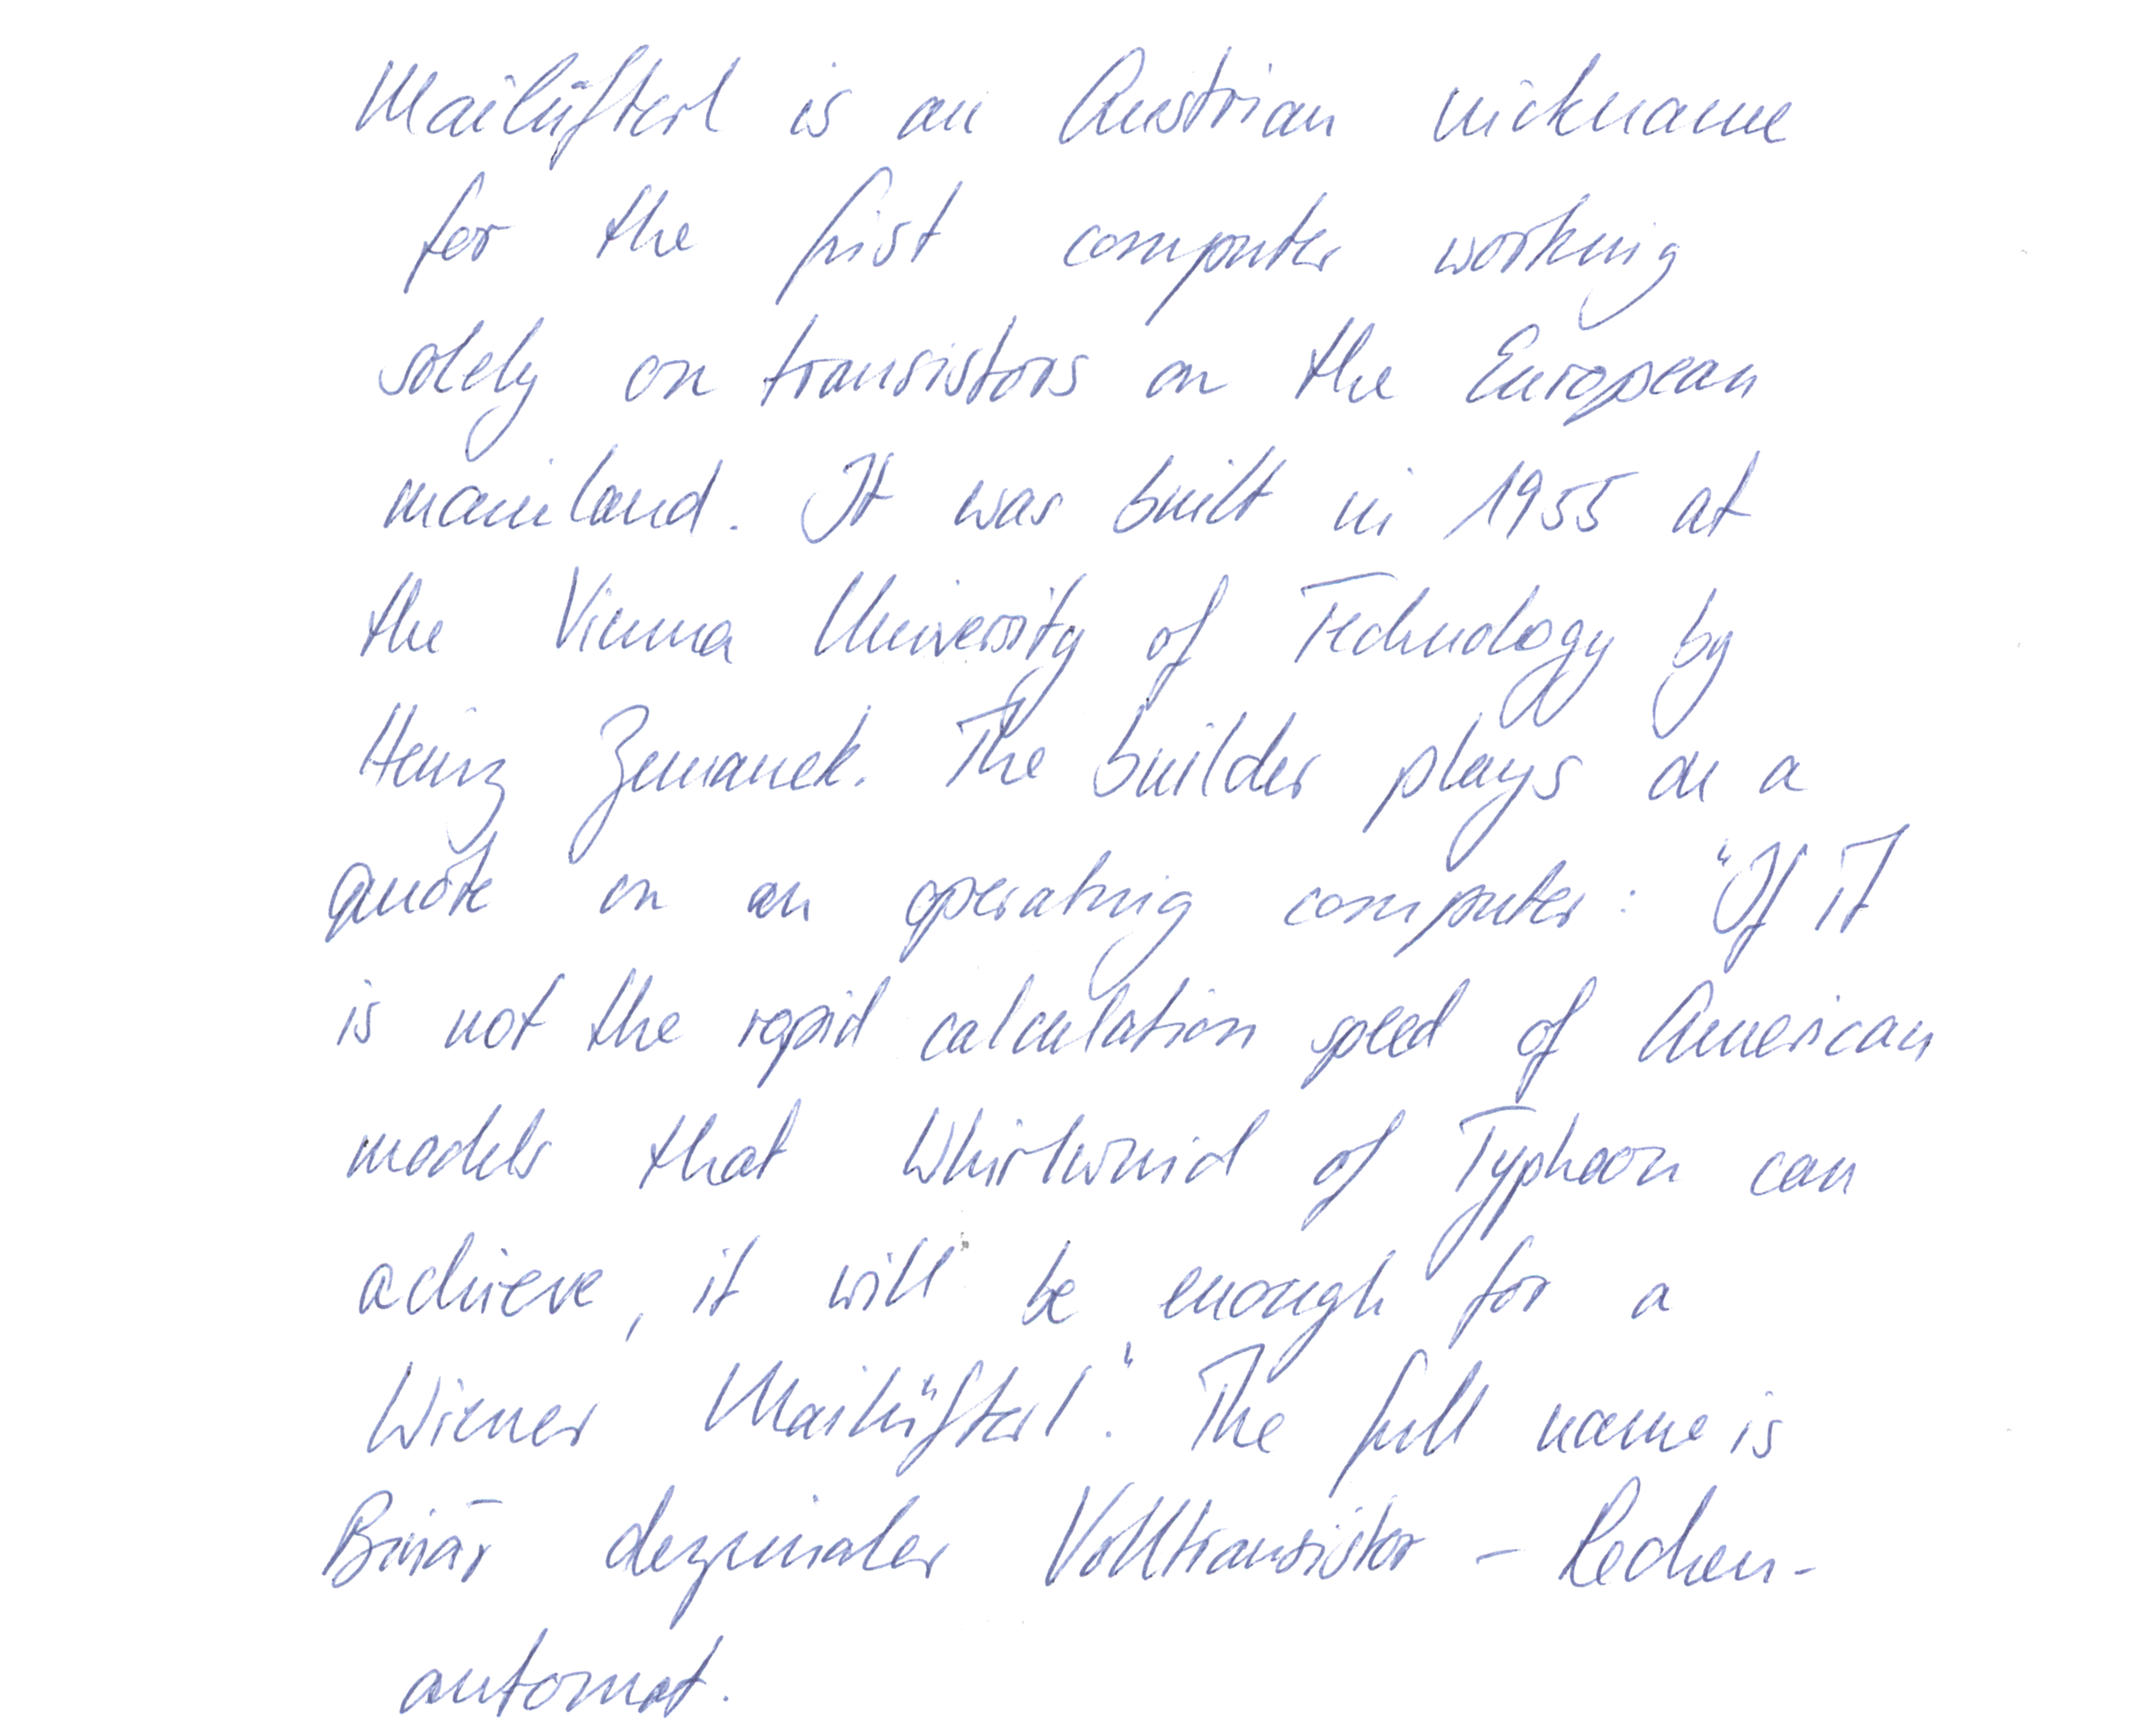 Mailüfterl is an Austrian nickname
for the first computer working
solely on transistors on the European
mainland. It was built in 1955 at
the Vienna University of Technology by
Heinz Zemanek. The builder plays on a
quote on an operating computer: "If it
is not the rapid calculation speed of American
models that Whirlwind of Typhoon can
achieve, it will be enough for a
Wiener Mailüfterl". The full name is
Binär dezimaler Volltransistor - Rechen-
automat.